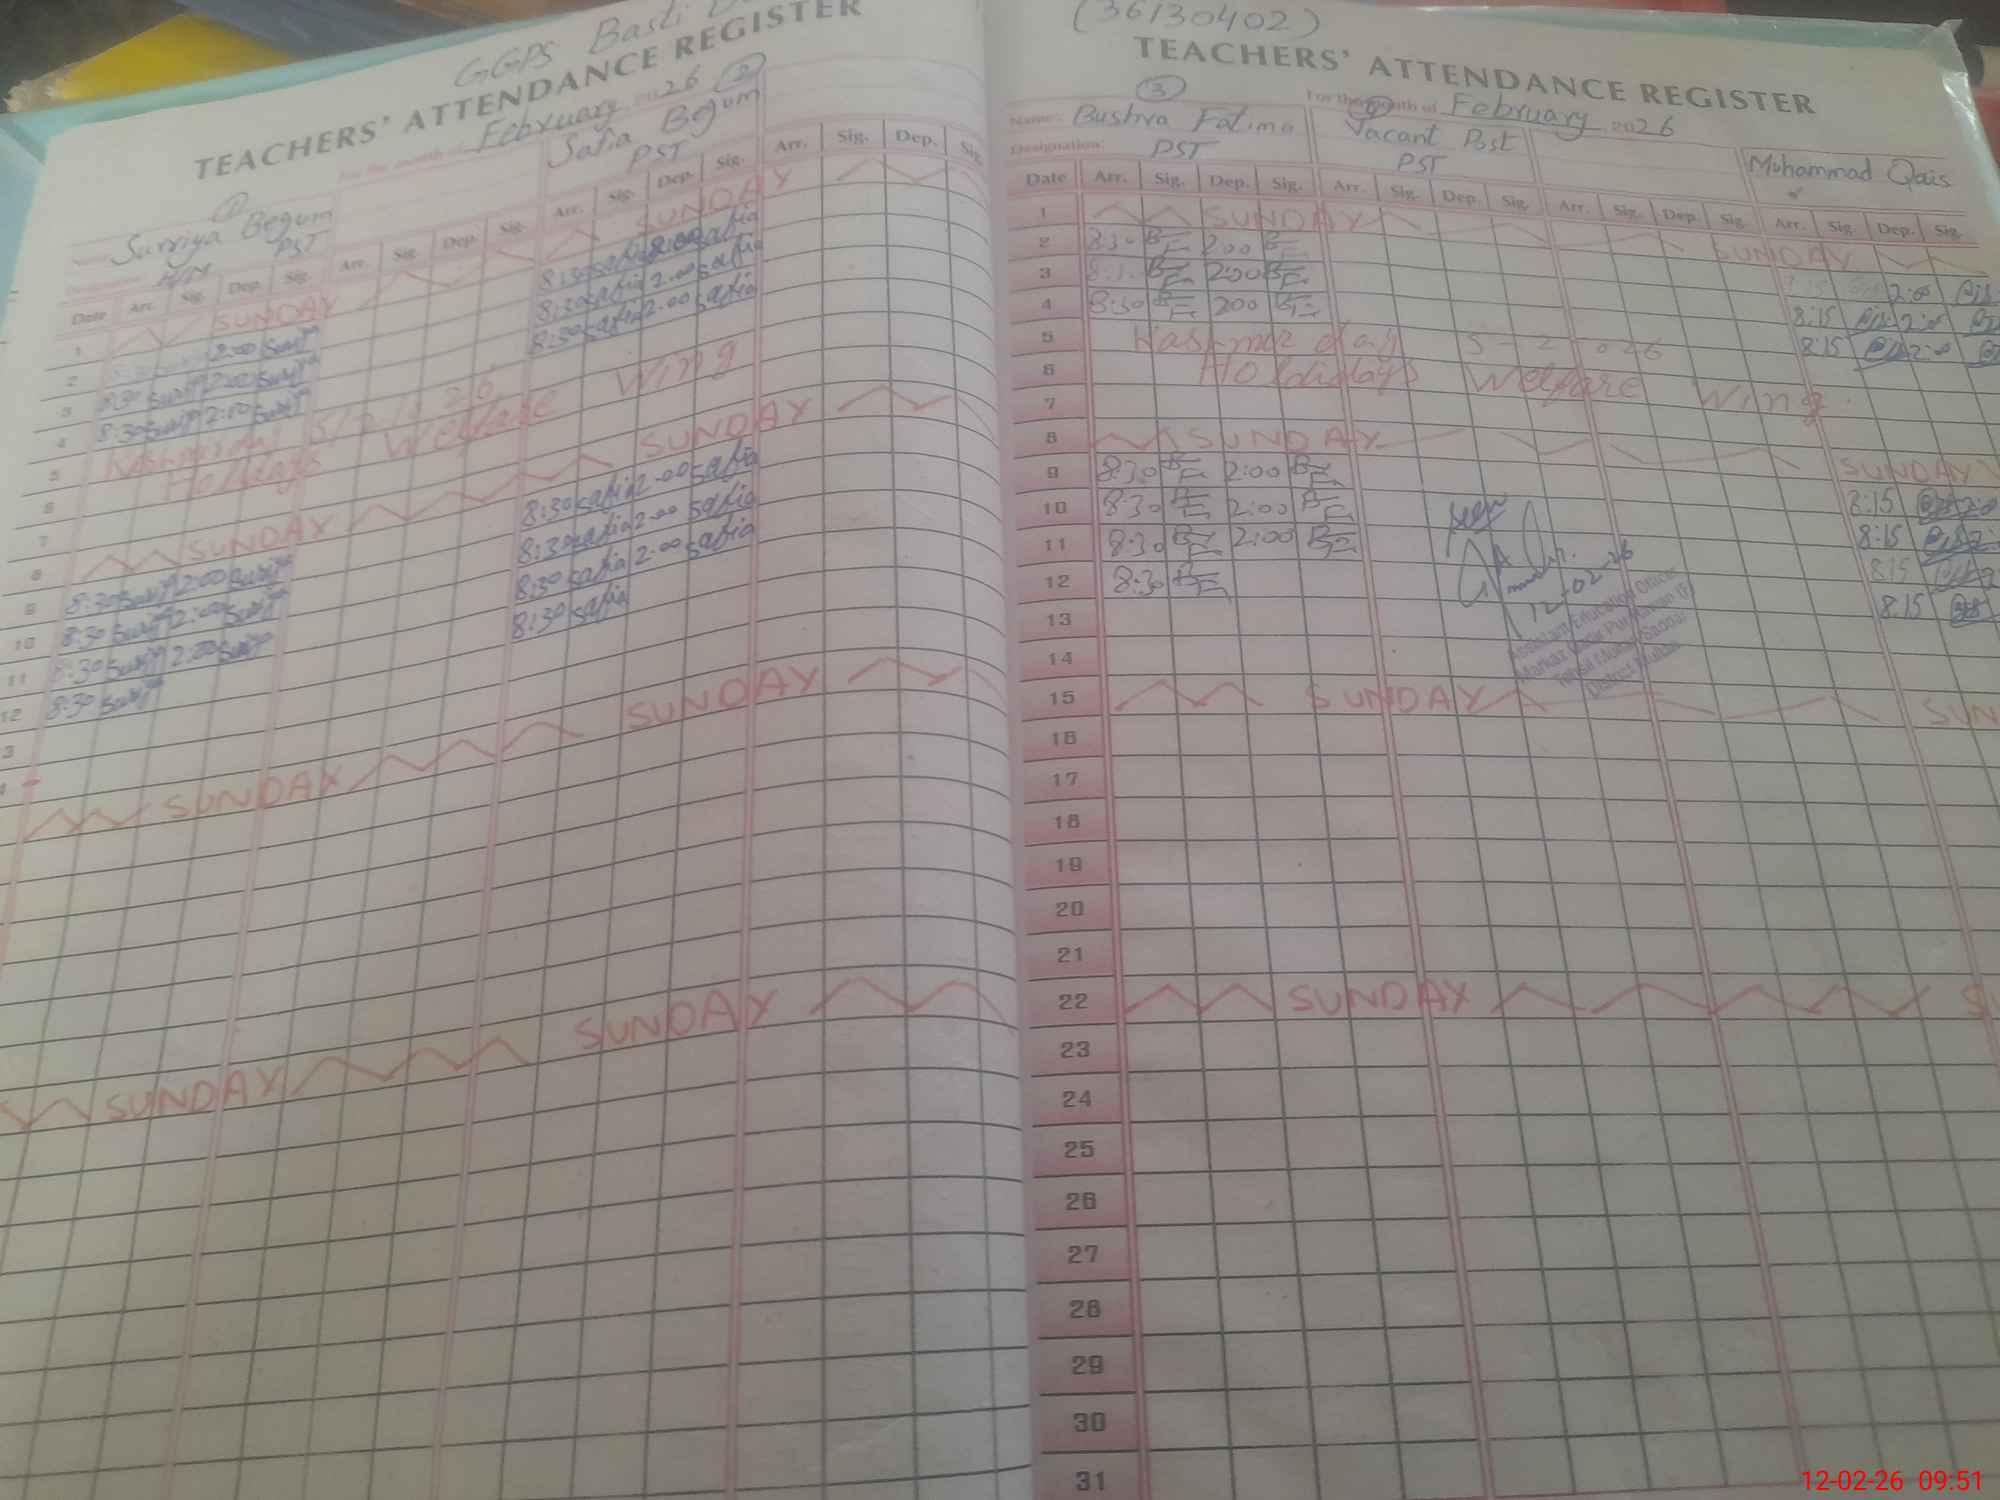 GGPS Basti
TEACHERS' ATTENDANCE REGISTER
For the month of February 2026
① Surriya Begum
H/M PST
② Safia Begum
PST
Date Arr. Sig. Dep. Sig. Arr. Sig. Dep. Sig. Arr. Sig. Dep. Sig. Arr. Sig. Dep. Sig.
1 SUNDAY SUNDAY
2 2:00 8:30 safia 2:00 safia
3 8:30 2:00 8:30 safia 2.00 safia
4 8:30 2:00 8:30 safia 2.00 safia
5
6 Holidays Welfare Wing
7
8 SUNDAY SUNDAY
9 8:30 2:00 8:30 safia 2.00 safia
10 8:30 2:00 8:30 safia 2.00 safia
11 8:30 2:00 8:30 safia 2.00 safia
12 8:30 8:30 safia
SUNDAY SUNDAY
SUNDAY SUNDAY
(36130402)
TEACHERS' ATTENDANCE REGISTER
For the month of February 2026
Name: ③ Bushra Fatima Vacant Post Muhammad Qais
Designation: PST PST
Date Arr. Sig. Dep. Sig. Arr. Sig. Dep. Sig. Arr. Sig. Dep. Sig. Arr. Sig. Dep. Sig.
1 SUNDAY SUNDAY
2 8:30 BF 2:00 BF 2:00
3 BF 2:00 BF 8:15 2:00
4 8:30 BF 200 BF 8:15 2:00
5 Kashmir day 5-2-2026
6 Holidays Welfare Wing
7
8 SUNDAY SUNDAY
9 8:30 BF 2:00 BF 8:15
10 8:30 BF 2:00 BF 8:15
11 8:30 BF 2:00 BF 8:15
12 8:30 BF 8:15
12-02-26
Assistant Education Officer
Markaz
Tehsil Multan Saddar
District Multan
13
14
15 SUNDAY SUN
16
17
18
19
20
21
22 SUNDAY S
23
24
25
26
27
28
29
30
31
12-02-26 09:51